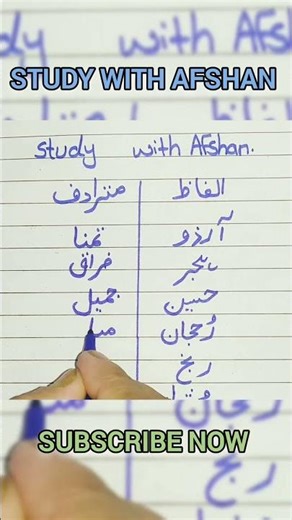 STUDY WITH AFSHAN
Study with AFshan.
الفاظ مترادف
آرزو تمنا
ہجر فراق
حسین جمیل
رُحجان
رنج
SUBSCRIBE NOW